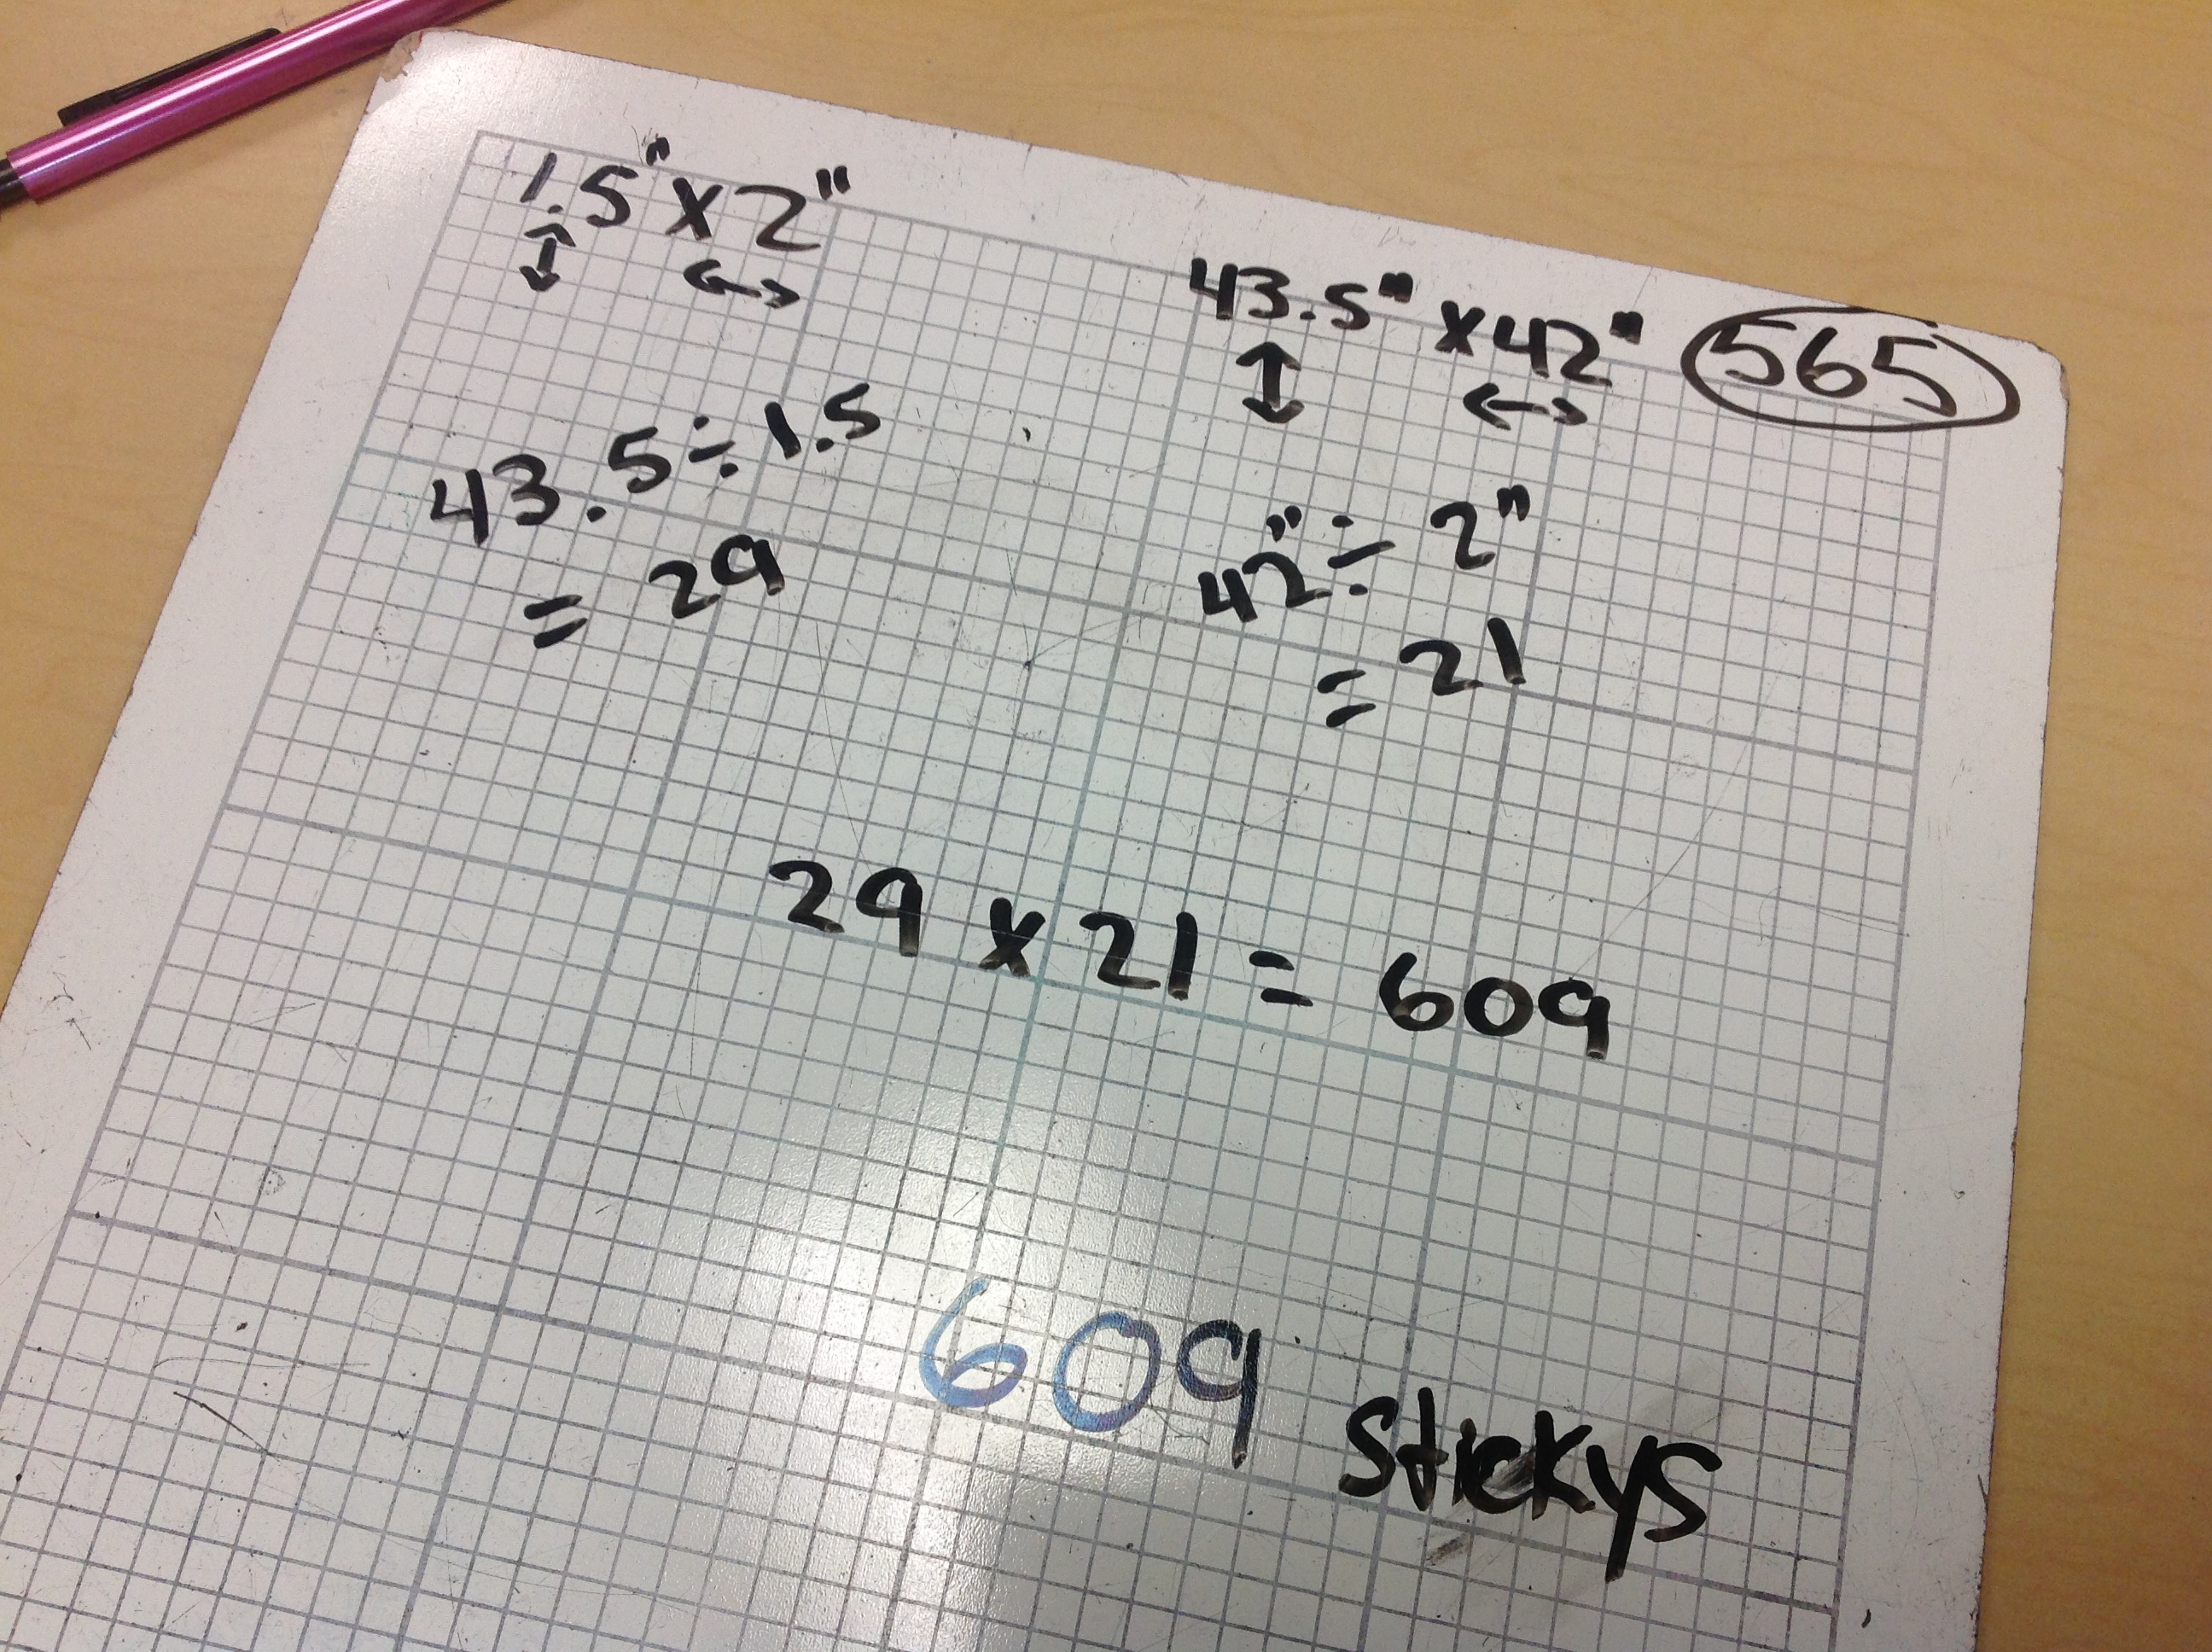 1.5" x 2"
43.5" x 42" 565
43.5 ÷ 1.5
= 29
42" ÷ 2"
= 21
29 x 21 = 609
609 stickys